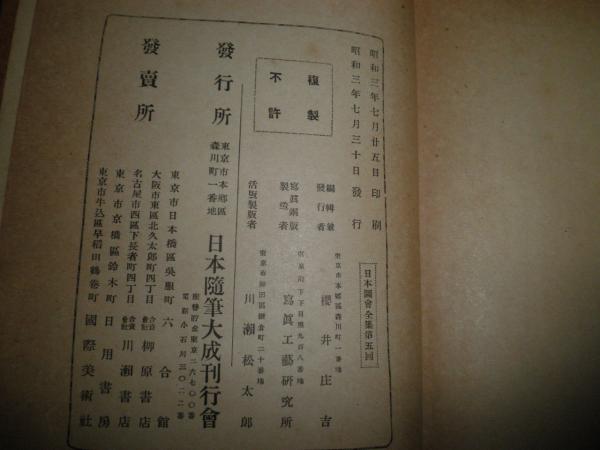 昭和三年七月廿五日印刷
昭和三年七月三十日發行
日本圖會全集第五回
複製
不許
編輯兼
發行者
東京市本鄕區森川町一番地
櫻井庄吉
寫眞銅版
製版者
寫眞工藝硏究所
活版製版者
東京市神田區鎌倉町二十番地
川瀨松太郎
發行所
東京市本鄕區
森川町一番地
日本隨筆大成刊行會
發賣所
東京市日本橋區吳服町
六合館
大阪市東區北久太郎町四丁目
合資會社
柳原書店
名古屋市西區下長者町四丁目
合資會社
川瀨書店
東京市京橋區鈴木町
日用書房
東京市牛込區早稻田鶴卷町
國際美術社